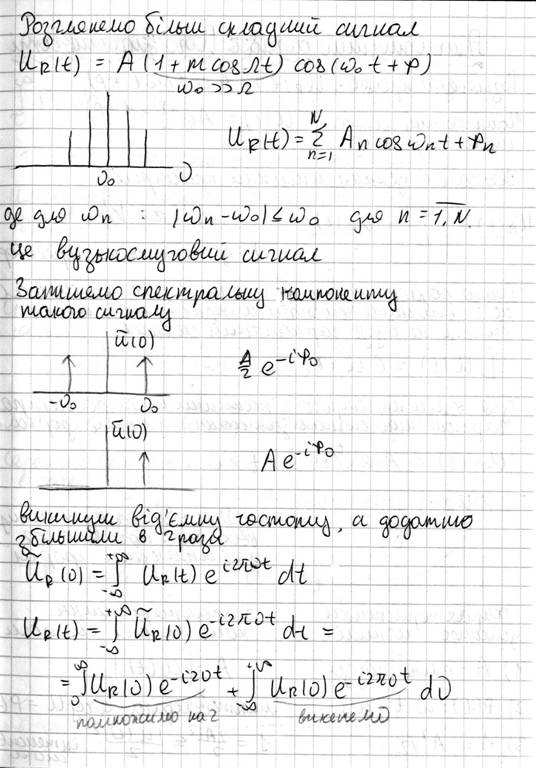 Розглянемо більш складний сигнал
U_R(t) = A(1 + m cos Ωt) cos(ω₀t + φ)
ω₀ >> Ω
U_R(t) = Σ_{n=1}^{N} A_n cos ω_n t + φ_n
ν₀ ν
де для ω_n : |ω_n - ω₀| ≤ ω₀ для n = 1, N.
це вузькосмуговий сигнал
Запишемо спектральну компоненту
такого сигналу
ũ(ν)
A/2 e^{-iφ₀}
-ν₀ ν₀
ũ(ν)
A e^{-iφ₀}
викинули від'ємну частоту, а додатню
збільшили в 2 рази
Ũ_R(ν) = ∫_{-∞}^{+∞} U_R(t) e^{i2πνt} dt
U_R(t) = ∫_{-∞}^{+∞} Ũ_R(ν) e^{-i2πνt} dt =
= ∫_0^∞ U_R(ν) e^{-i2νt} + ∫_{-∞}^{+∞} U_R(ν) e^{-i2πνt} dν
помножимо на 2 викинемо